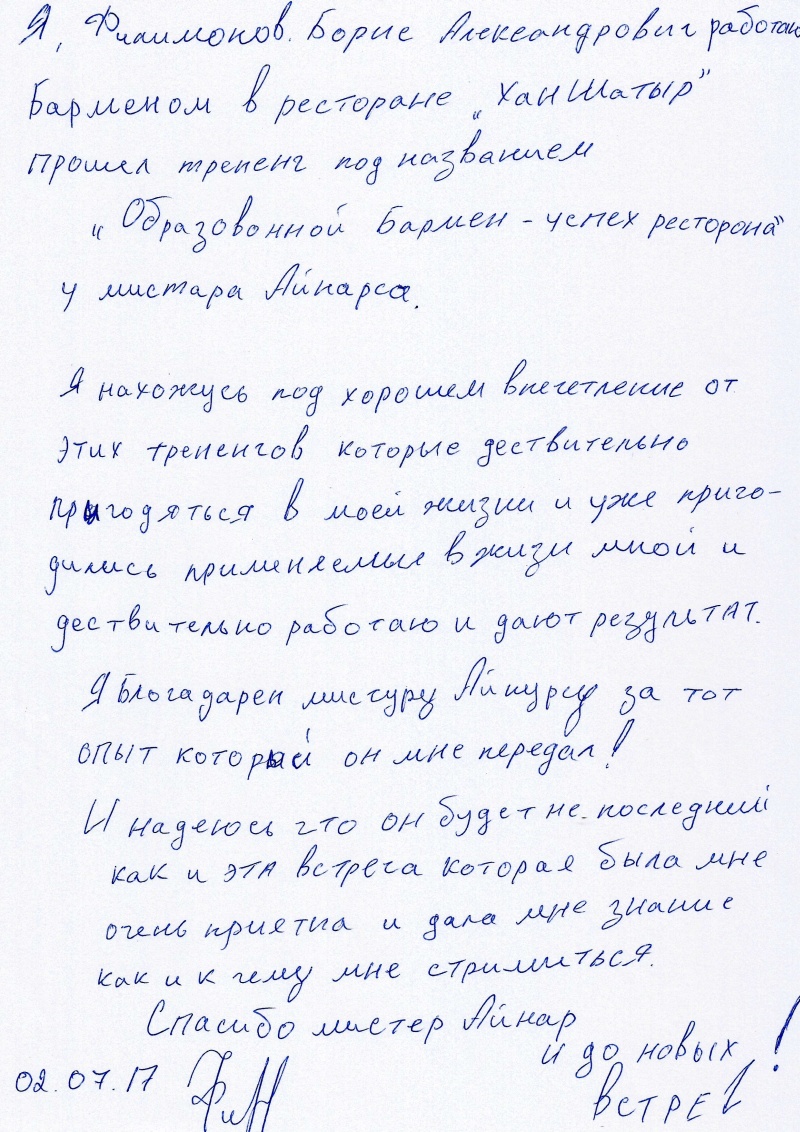 Я, Филимонов. Борис Александрович работаю
Барменом в ресторане „Хан Шатыр"
прошел трененг под названием
„Образовонной Бармен - успех ресторона"
у мистара Айнарса.
Я нахожусь под хорошем впечетление от
этих тренегов которые дествительно
пригодяться в моей жизни и уже приго-
дились применяемые в жизи мной и
дествительно работаю и дают результат.
Я Благадарен мистуру Айнурсу за тот
опыт который он мне передал!
И надеюсь что он будет не. последний
как и эта встреча которая была мне
очень приетна и дала мне знание
как и к чему мне стримиться.
Спасибо мистер Айнар
и до новых
встреч!
02.07.17